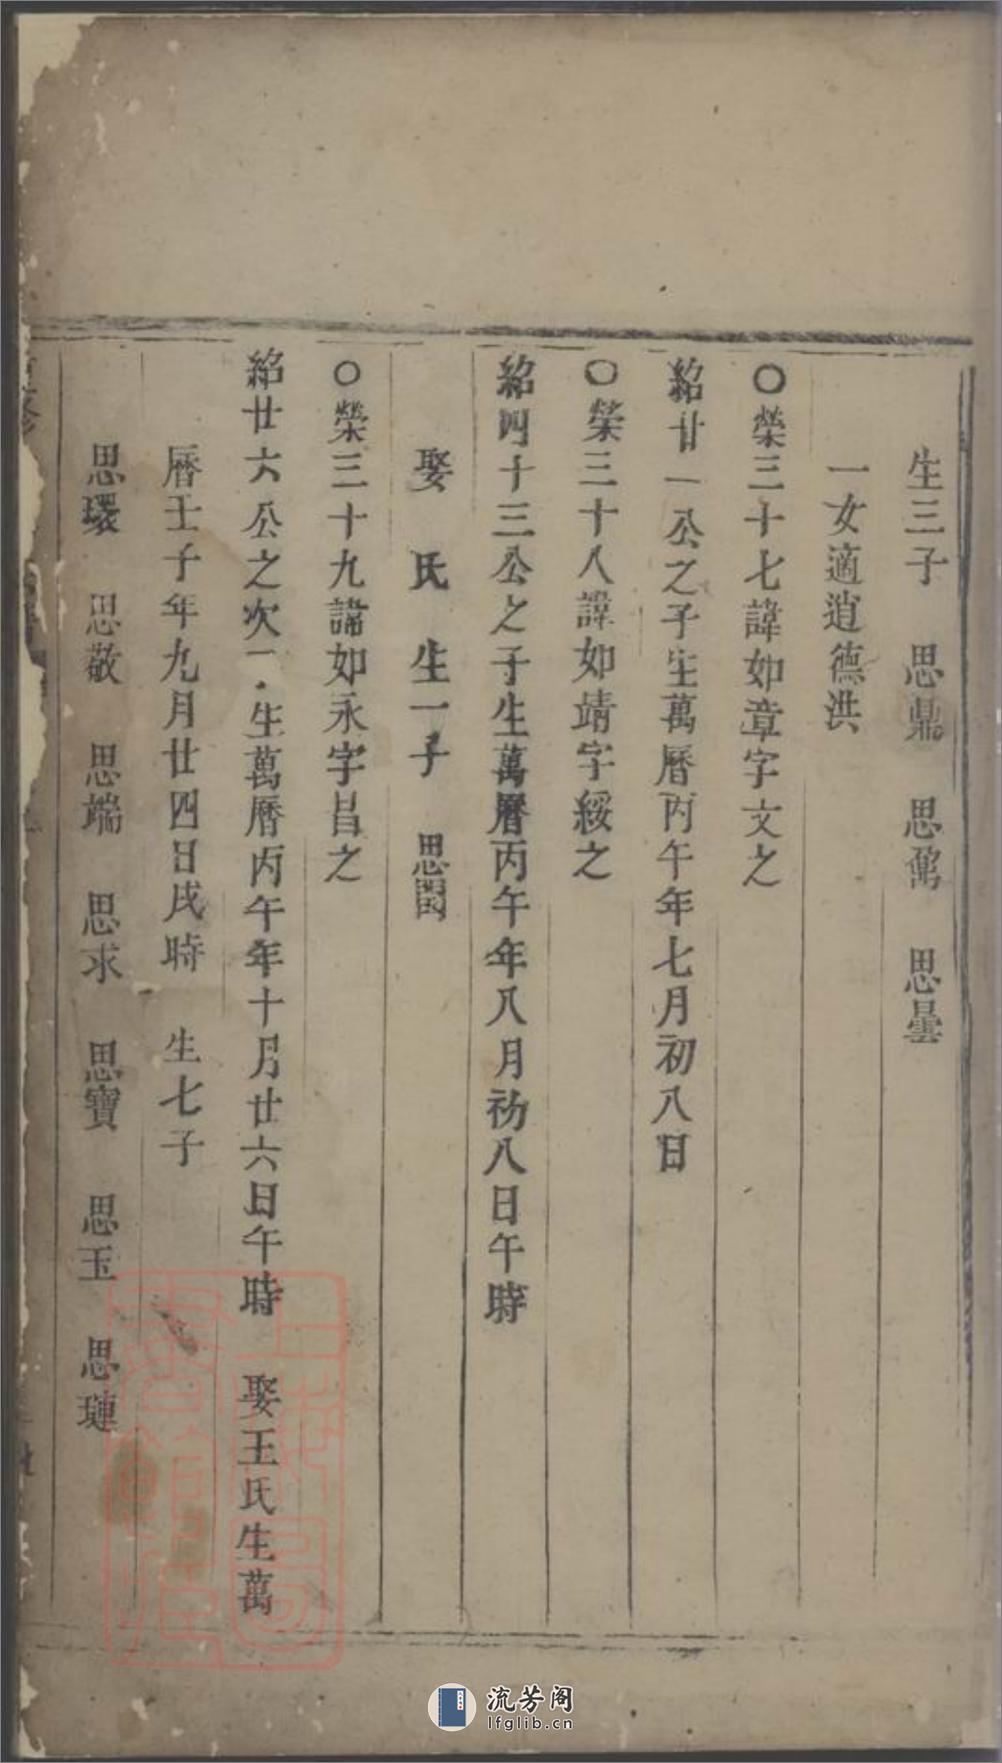 生三子 思鼎 思鸞 思曇
一女適逍德洪
○榮三十七諱如章字文之
紹廿一公之子生萬曆丙午年七月初八日
○榮三十八諱如靖字綏之
紹四十三公之子生萬曆丙午年八月初八日午時
娶 氏 生一子 思閔
○榮三十九諱如永字昌之
紹廿六公之次一生萬曆丙午年十月廿六日午時 娶王氏生萬
曆壬子年九月廿四日戌時 生七子
思環 思敬 思端 思求 思寶 思玉 思璉
流芳阁
lfglib.cn